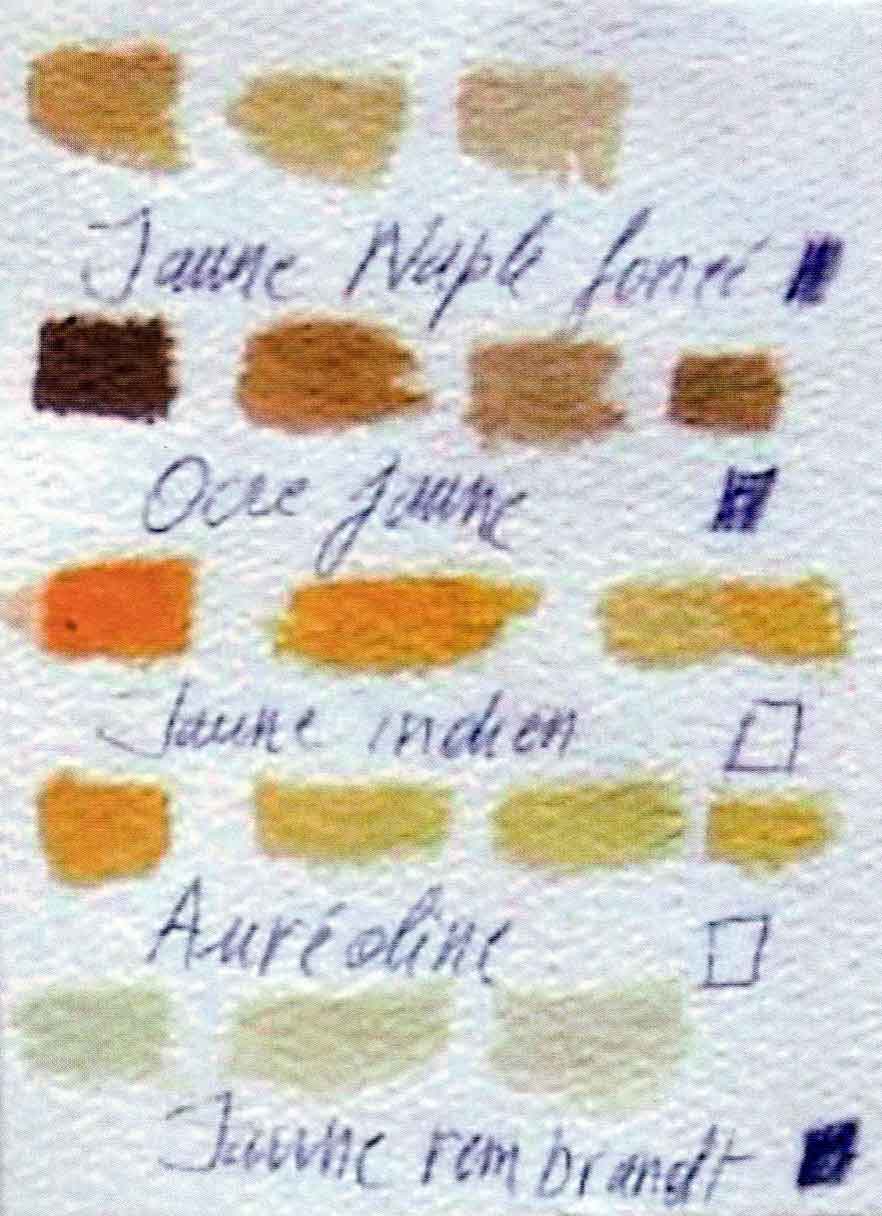 Jaune Naple foncé
Ocre jaune
Jaune indien
Auréoline
Jaune rembrandt